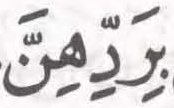 بِرَدِّهِنَّ